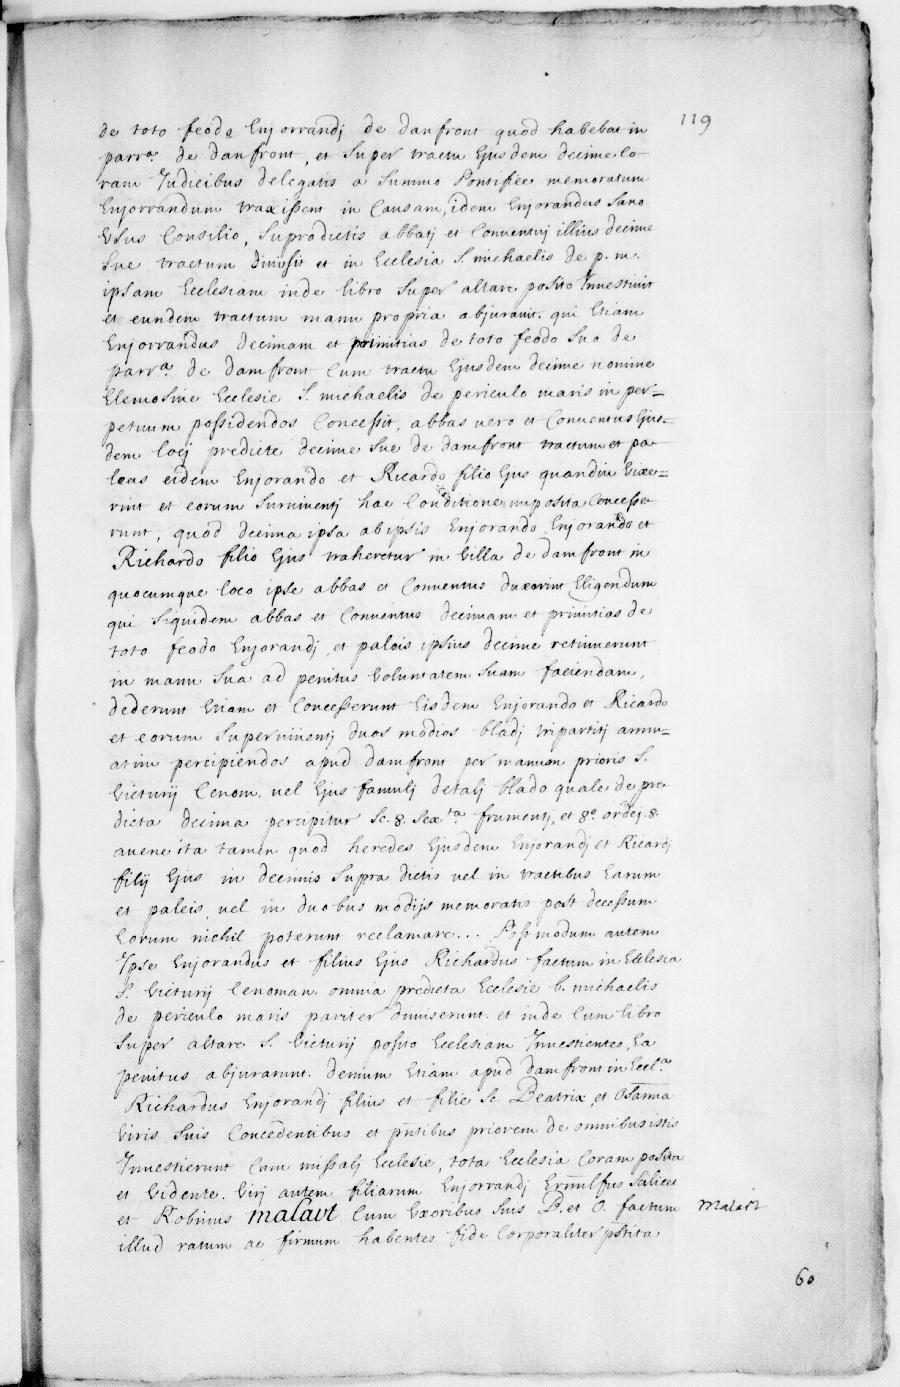 119
de toto feodo Enjorrandj de danfront quod habebat in
parra. de danfront, et super tractu Ejusdem decime co-
ram Judicibus delegatis a Summo Pontifice memoratum
Enjorrandum traxissent in Causam, idem Enjorandus sano
Usus Consilio, supradictis abbatj et Conventuj illius decime
sue tractum dimisit et in Ecclesia S. michaelis de p. m.
ipsam Ecclesiam inde libro super altare posito Investiuit
et eundem tractum manu propria abjurauit. qui Etiam
Enjorrandus decimam et primitias de toto feodo suo de
parra. de damfront Cum tractu Ejusdem decime nomine
Elemosine Ecclesie S. michaelis de periculo maris in per=
petuum possidendos Concessit, abbas uero et Conuentus Ejus=
dem locj predicte decime sue de damfront tractum et pa
leas eidem Enjorando et Ricardo filio Ejus quandiu Vixe=
rint et eorum Suruiuentj hac Conditione imposita Concesse
runt, quod decima ipsa ab ipsis Enjorando Enjorando et
Richardo filio Ejus traheretur in Villa de damfront in
quocumque loco ipse abbas et Conuentus duxerint Eligendum
qui siquidem abbas et Conuentus decimam et primitias de
toto feodo Enjorandj, et paleis ipsius decime retinuerunt
in manu sua ad penitus Voluntatem suam faciendam,
dederunt Etiam et Concesserunt Eisdem Enjorando et Ricardo
et eorum superuiuentj duos modios bladj tripartitj annu=
atim percipiendos apud damfront per manum prioris S.
Victurij Cenom. uel Ejus famulj de talj blado quale de pre
dicta decima percipitur sc. 8. sexta frumentj, et 8o ordej. 8.
auene ita tamen quod heredes Ejusdem Enjorandj et Ricardj
filij Ejus in decimis supra dictis uel in tractibus Earum
et paleis, uel in duobus modijs memoratis post decessum
Eorum nichil poterunt reclamare... Post modum autem
Ipse Enjorandus et filius Ejus Richardus factum in Ecclesia
S. Victurij Cenoman. omnia predicta Ecclesie b. michaelis
de periculo maris pariter dimiserunt. et inde Cum libro
super altare S. Victurij posito Ecclesiam Inuestientes, Ea
penitus abjurarunt. demum Etiam apud damfront in Eccla.
Richardus Enjorandj filius et filie sc. Beatrix, et Osanna
Viris suis Concedentibus et pntibus priorem de omnibus istis
Inuestierunt Cum missalj Ecclesie, tota Ecclesia Coram posita
et Vidente. Virj autem filiarum Enjorrandj Ernulfus Salices
et Robinus malart Cum Uxoribus suis B. et O. factum malart
illud ratum ac firmum habentes fide Corporaliter pstita
60